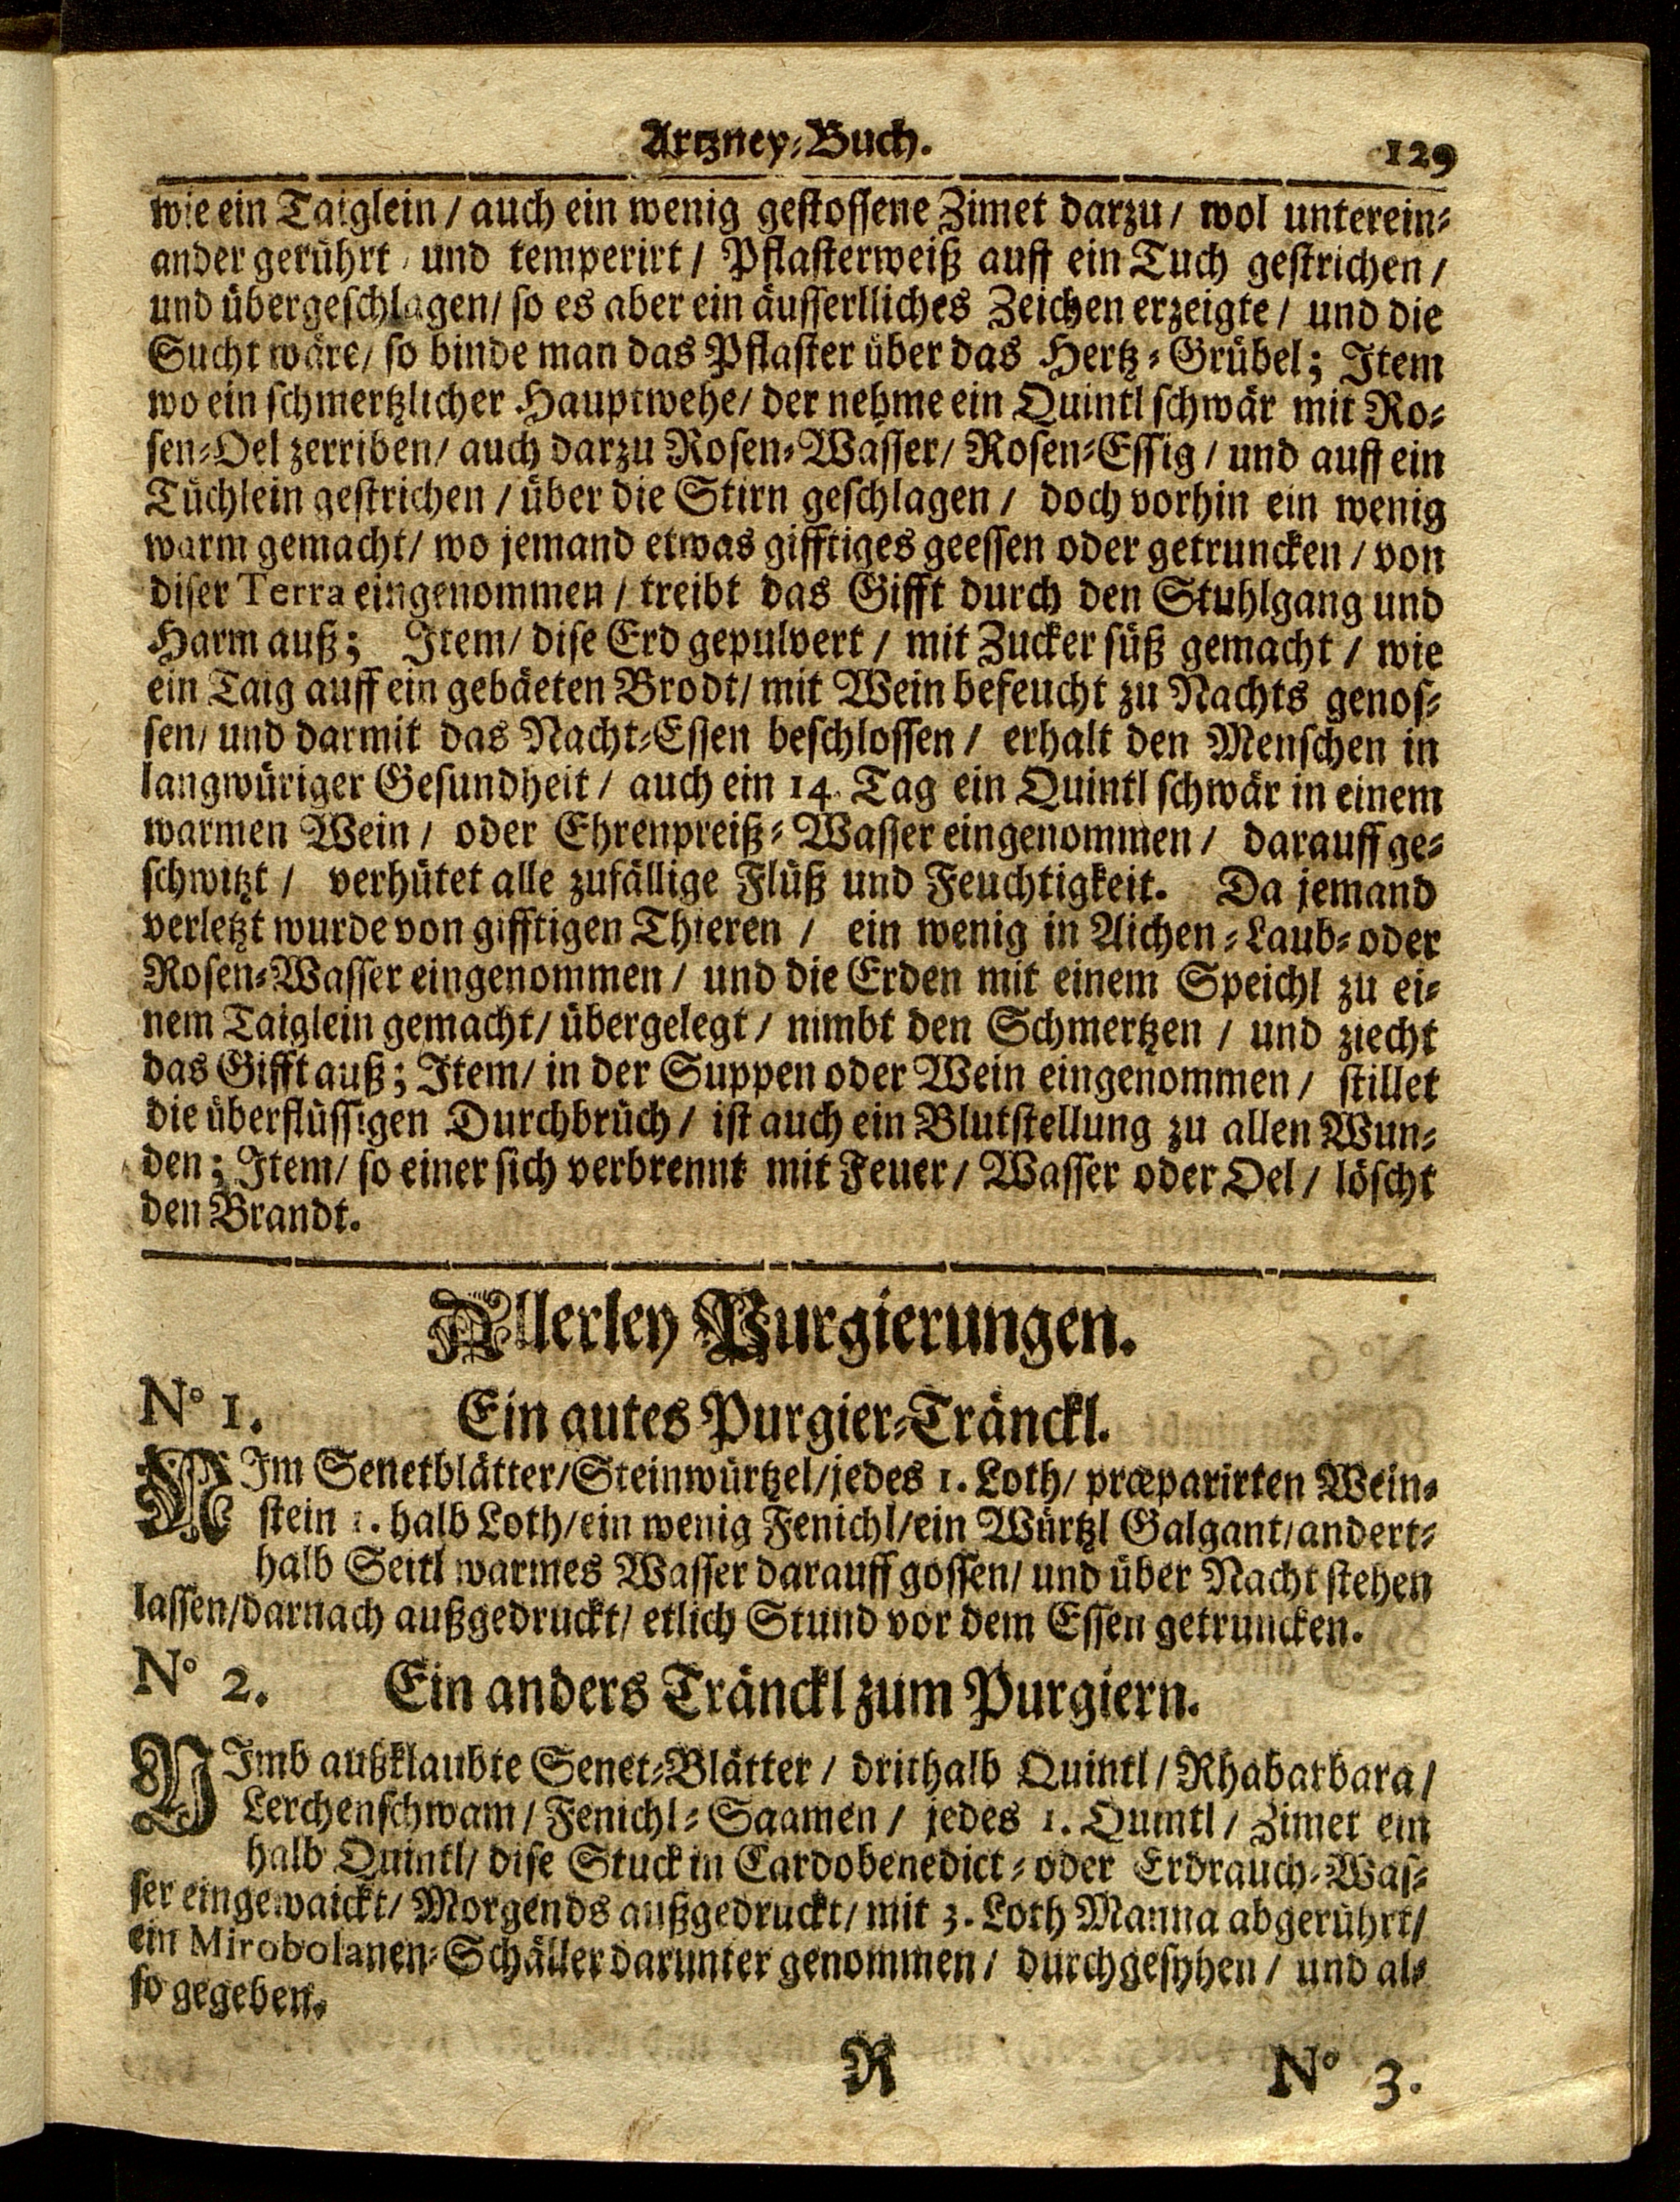 Artzney-Buch.
129
wie ein Taiglein / auch ein wenig gestossene Zimet darzu / wol unterein-
ander gerührt / und temperirt / Pflasterweiß auff ein Tuch gestrichen /
und übergeschlagen / so es aber ein äusserlliches Zeichen erzeigte / und die
Sucht wäre / so binde man das Pflaster über das Hertz-Grübel; Item
wo ein schmertzlicher Hauptwehe / der nehme ein Quintl schwär mit Ro-
sen-Oel zerriben / auch darzu Rosen-Wasser / Rosen-Essig / und auff ein
Tüchlein gestrichen / über die Stirn geschlagen / doch vorhin ein wenig
warm gemacht / wo jemand etwas gifftiges geessen oder getruncken / von
diser Terra eingenommen / treibt das Gifft durch den Stuhlgang und
Harm auß; Item / dise Erd gepulvert / mit Zucker süß gemacht / wie
ein Taig auff ein gebäeten Brodt / mit Wein befeucht zu Nachts genos-
sen / und darmit das Nacht-Essen beschlossen / erhalt den Menschen in
langwüriger Gesundheit / auch ein 14. Tag ein Quintl schwär in einem
warmen Wein / oder Ehrenpreiß-Wasser eingenommen / darauff ge-
schwitzt / verhütet alle zufällige Flüß und Feuchtigkeit. Da jemand
verletzt wurde von gifftigen Thieren / ein wenig in Aichen-Laub- oder
Rosen-Wasser eingenommen / und die Erden mit einem Speichl zu ei-
nem Taiglein gemacht / übergelegt / nimbt den Schmertzen / und ziecht
das Gifft auß; Item / in der Suppen oder Wein eingenommen / stillet
die überflüssigen Durchbrüch / ist auch ein Blutstellung zu allen Wun-
den; Item / so einer sich verbrennt mit Feuer / Wasser oder Oel / löscht
den Brandt.
Allerley Purgierungen.
N° 1. Ein gutes Purgier-Tränckl.
NIm Senetblätter / Steinwürtzel / jedes 1. Loth / præparirten Wein-
stein 1. halb Loth / ein wenig Fenichl / ein Würtzl Galgant / andert-
halb Seitl warmes Wasser darauff gossen / und über Nacht stehen
lassen / darnach außgedruckt / etlich Stund vor dem Essen getruncken.
N° 2. Ein anders Tränckl zum Purgiern.
NImb außklaubte Senet-Blätter / drithalb Quintl / Rhabarbara /
Lerchenschwam / Fenichl-Saamen / jedes 1. Quintl / Zimet ein
halb Quintl / dise Stuck in Cardobenedict- oder Erdrauch-Was-
ser eingewaickt / Morgends außgedruckt / mit 3. Loth Manna abgerührt /
ein Mirobolanen-Schäller darunter genommen / durchgesyhen / und al-
so gegeben.
R
N° 3.